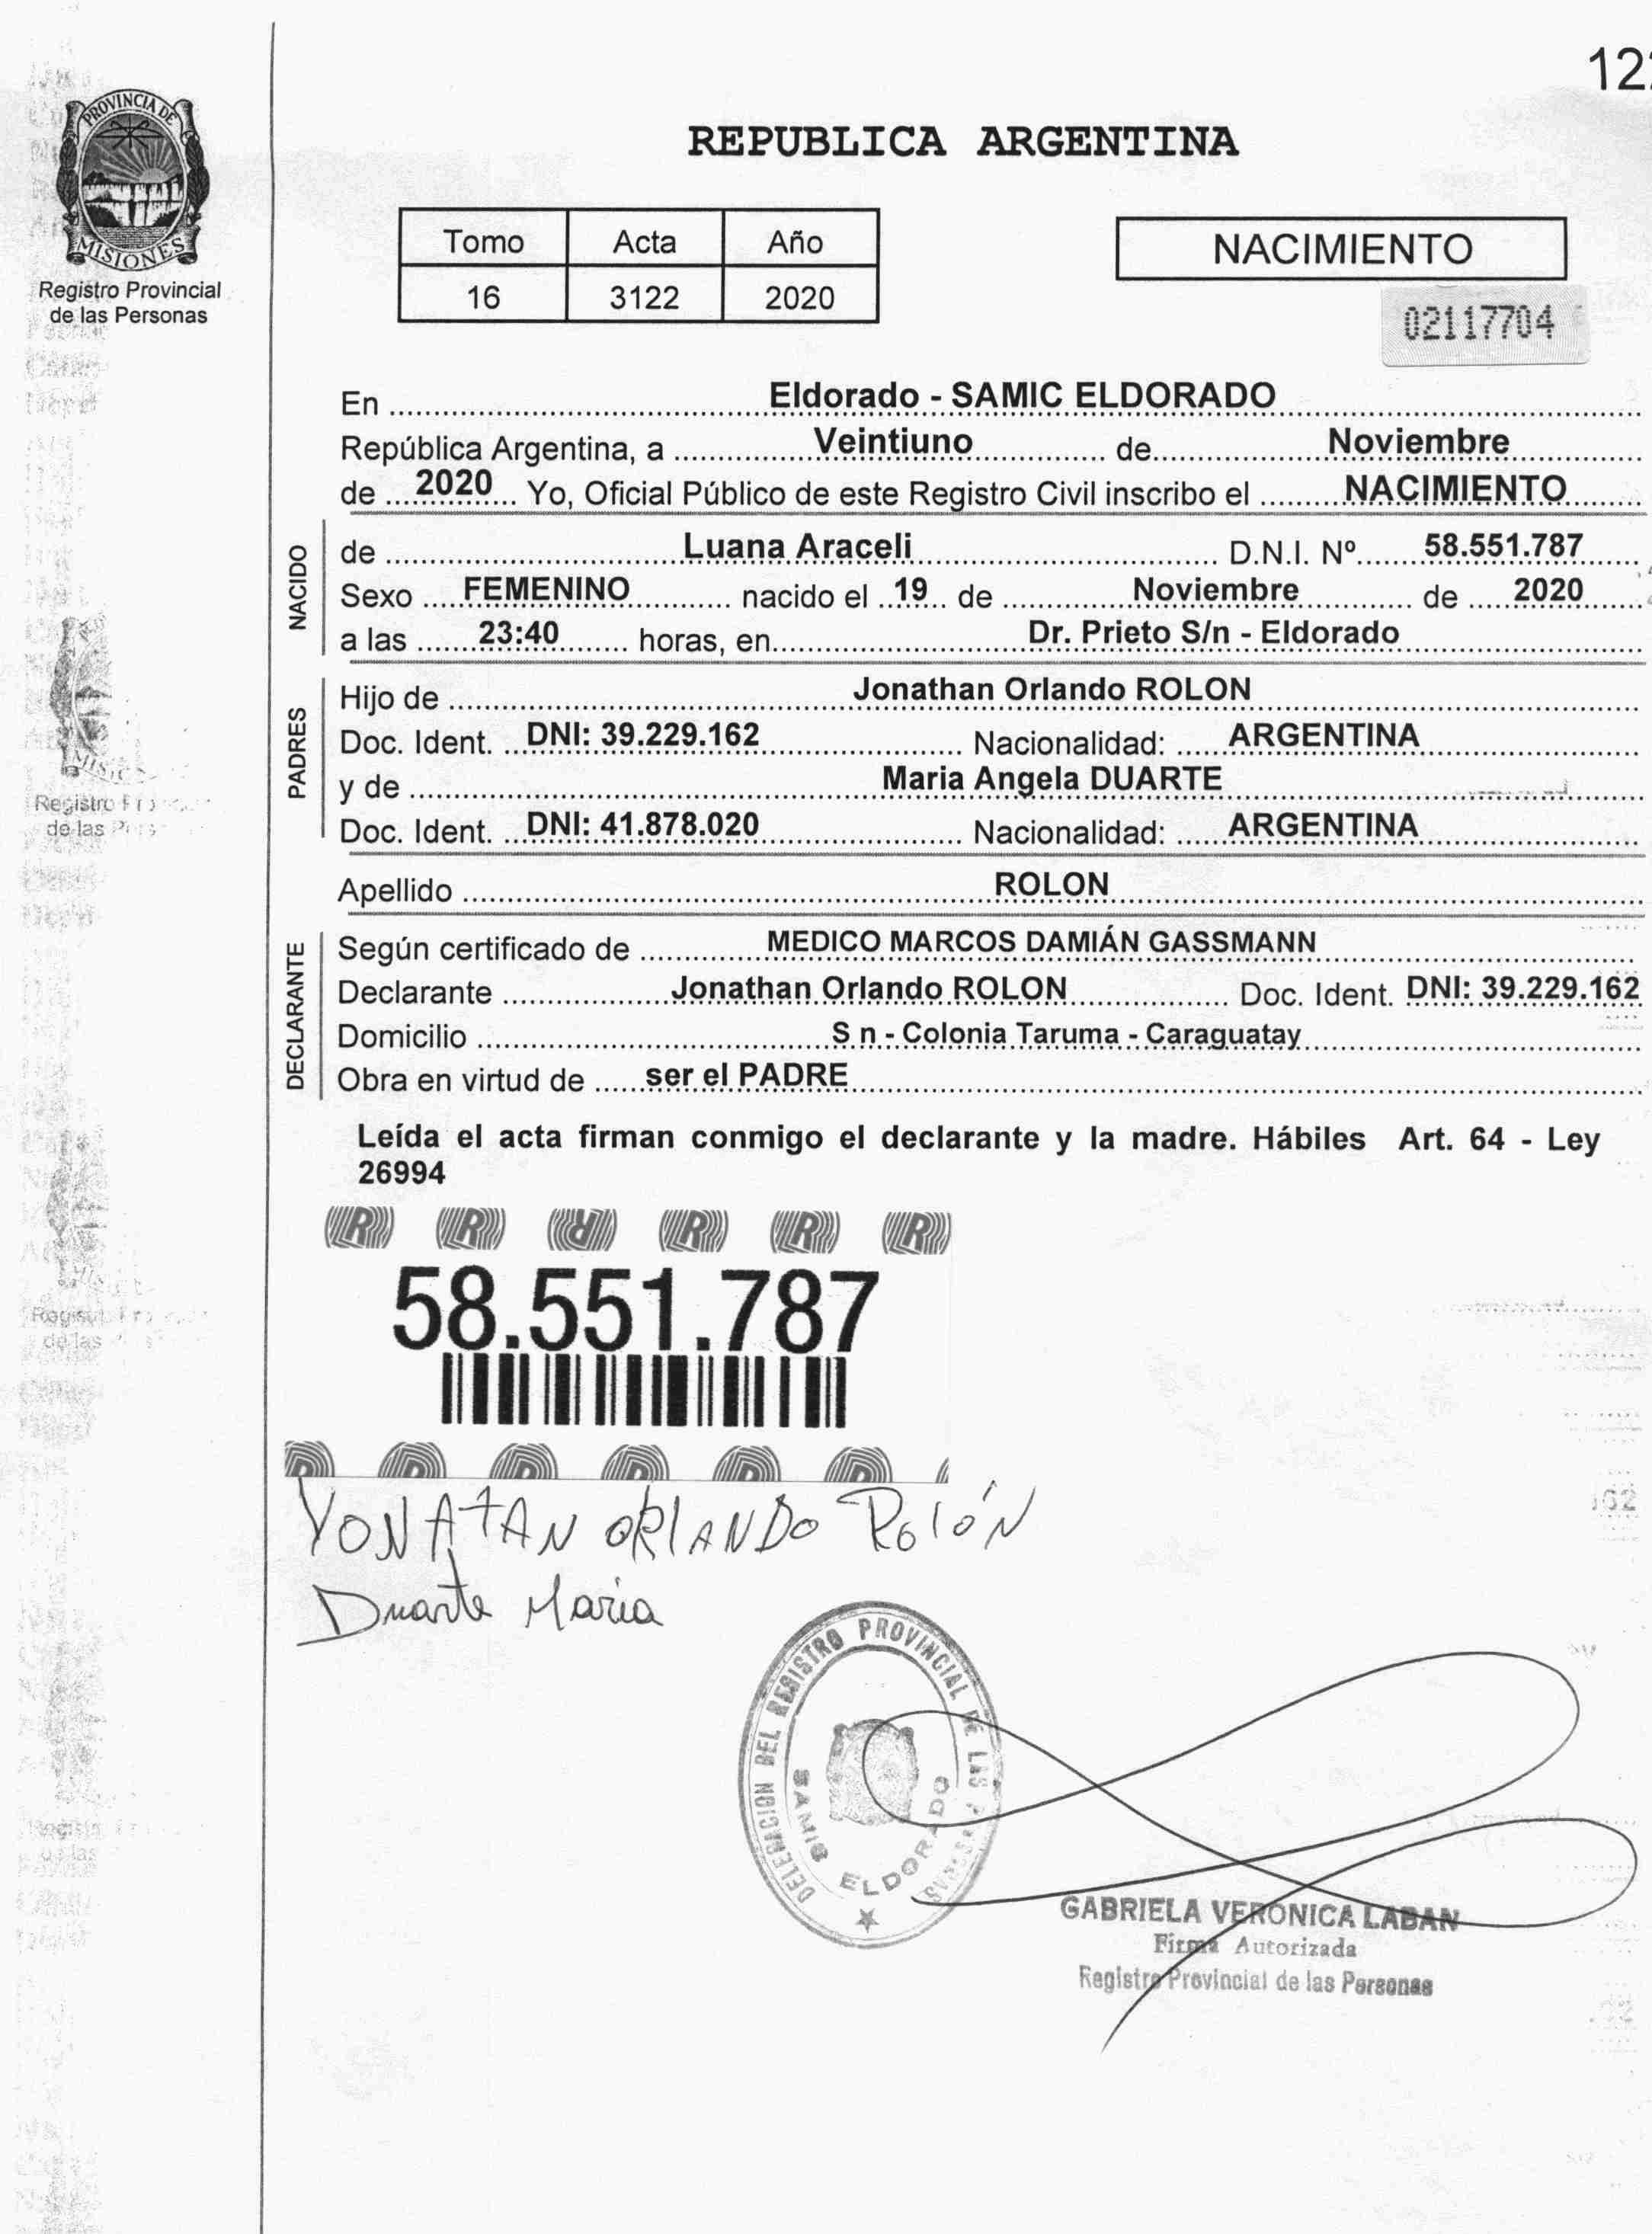 12
PROVINCIA DE
MISIONES
Registro Provincial
de las Personas
REPUBLICA ARGENTINA
Tomo Acta Año
16 3122 2020
NACIMIENTO
02117704
En Eldorado - SAMIC ELDORADO
República Argentina, a Veintiuno de Noviembre
de 2020 Yo, Oficial Público de este Registro Civil inscribo el NACIMIENTO
NACIDO
de Luana Araceli D.N.I. Nº 58.551.787
Sexo FEMENINO nacido el 19 de Noviembre de 2020
a las 23:40 horas, en Dr. Prieto S/n - Eldorado
PADRES
Hijo de Jonathan Orlando ROLON
Doc. Ident. DNI: 39.229.162 Nacionalidad: ARGENTINA
y de Maria Angela DUARTE
Doc. Ident. DNI: 41.878.020 Nacionalidad: ARGENTINA
Apellido ROLON
DECLARANTE
Según certificado de MEDICO MARCOS DAMIÁN GASSMANN
Declarante Jonathan Orlando ROLON Doc. Ident. DNI: 39.229.162
Domicilio S n - Colonia Taruma - Caraguatay
Obra en virtud de ser el PADRE
Leída el acta firman conmigo el declarante y la madre. Hábiles Art. 64 - Ley
26994
58.551.787
YONATAN ORLANDO Rolón
Duarte Maria
DELEGACION DEL REGISTRO PROVINCIAL DE LAS PERSONAS
SAMIC ELDORADO
GABRIELA VERONICA LABAN
Firma Autorizada
Registro Provincial de las Personas